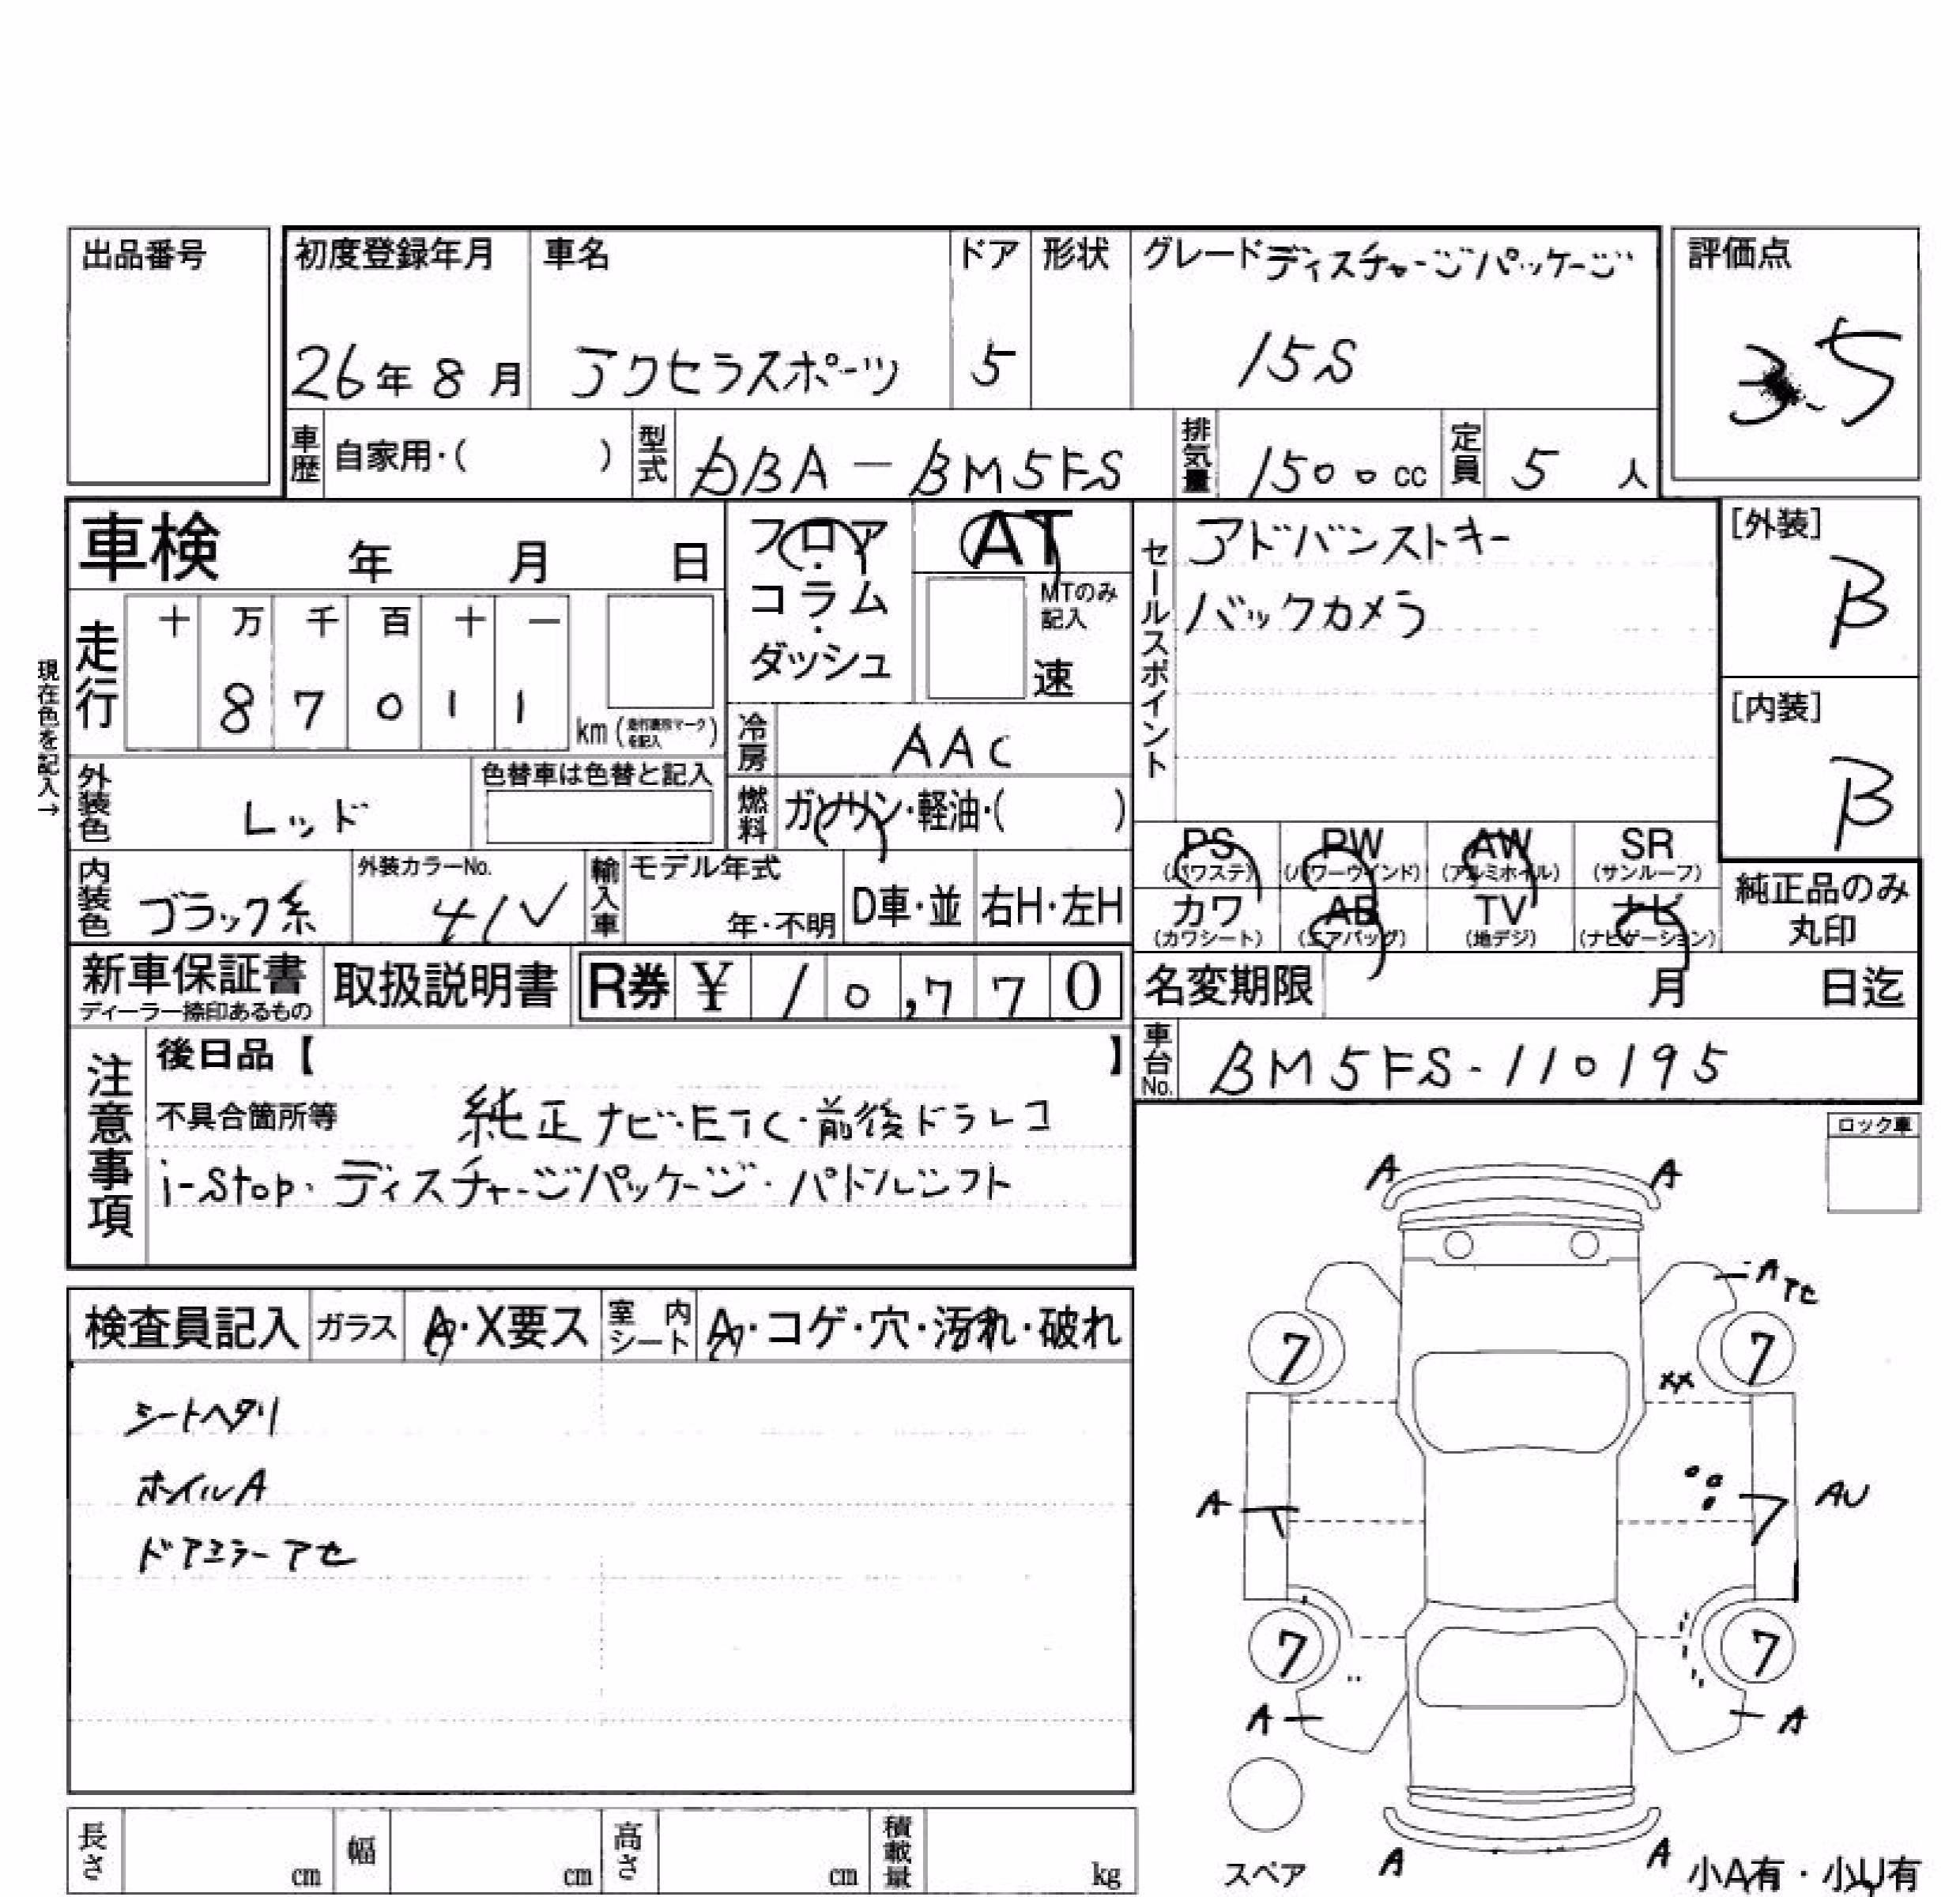 出品番号
初度登録年月 車名 ドア 形状 グレード ディスチャージパッケージ 評価点
26年 8月 アクセラスポーツ 5 15S 3.5
車歴 自家用・( ) 型式 DBA-BM5FS 排気量 1500cc 定員 5人
車検 年 月 日
フロア・コラム・ダッシュ
AT
MTのみ記入
速
セールスポイント
アドバンストキー
バックカメラ
[外装] B
[内装] B
現在色を記入→
走行 十 万 千 百 十 一
8 7 0 1 1 km
冷房 AAC
外装色 レッド 色替車は色替と記入
燃料 ガソリン・軽油・( )
PS PW AW SR
(パワステ) (パワーウインド) (アルミホイル) (サンルーフ)
カワ AB TV ナビ
(カワシート) (エアバッグ) (地デジ) (ナビゲーション)
純正品のみ丸印
内装色 ブラック系 外装カラーNo. 41V 輸入車 モデル年式 年・不明 D車・並 右H・左H
新車保証書 取扱説明書 R券 ¥ 10,770 名変期限 月 日迄
ディーラー捺印あるもの
車台No. BM5FS-110195
注意事項
後日品【 】
不具合箇所等 純正ナビ・ETC・前後ドラレコ
i-stop・ディスチャージパッケージ・パドルシフト
ロック車
検査員記入 ガラス A・X要ス 室内シート A・コゲ・穴・汚れ・破れ
シートヘタリ
ホイルA
ドアミラーアセ
A A
A アセ
7 7
XX
A AU
7 7
A A
スペア
A A
小A有・小U有
長さ cm 幅 cm 高さ cm 積載量 kg